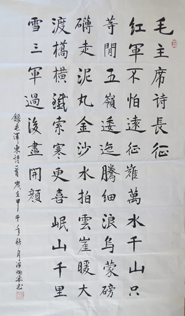 毛主席诗長征
红軍不怕遠征難萬水千山只
等閒五嶺逶迤騰細浪烏蒙磅
礴走泥丸金沙水拍雲崖暖大
渡橋橫鐵索寒更喜岷山千里
雪三軍過後盡開顏
錄毛澤東詩一首